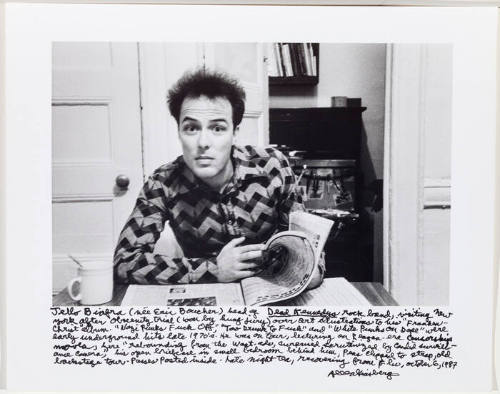 Jello Biafra (née Eric Boucher) head of Dead Kennedys rock band, visiting New
york after obscenity trial (won by hung-jury) over art illustrations to his Franken-
Christ album. "Nazi Punks Fuck Off," "Too Drunk to Fuck" and "White Punks on Dope" were
early underground hits late 1970's. He was on tour, lecturing on Reagan-era Censorship
here "rebounding from the West-side,
ance camera, his open briefcase in small bedroom behind him, Pass
backstage tour-Passes Pasted inside. Late night tea, recovering from flu, october 6, 1987
Allen Ginsberg